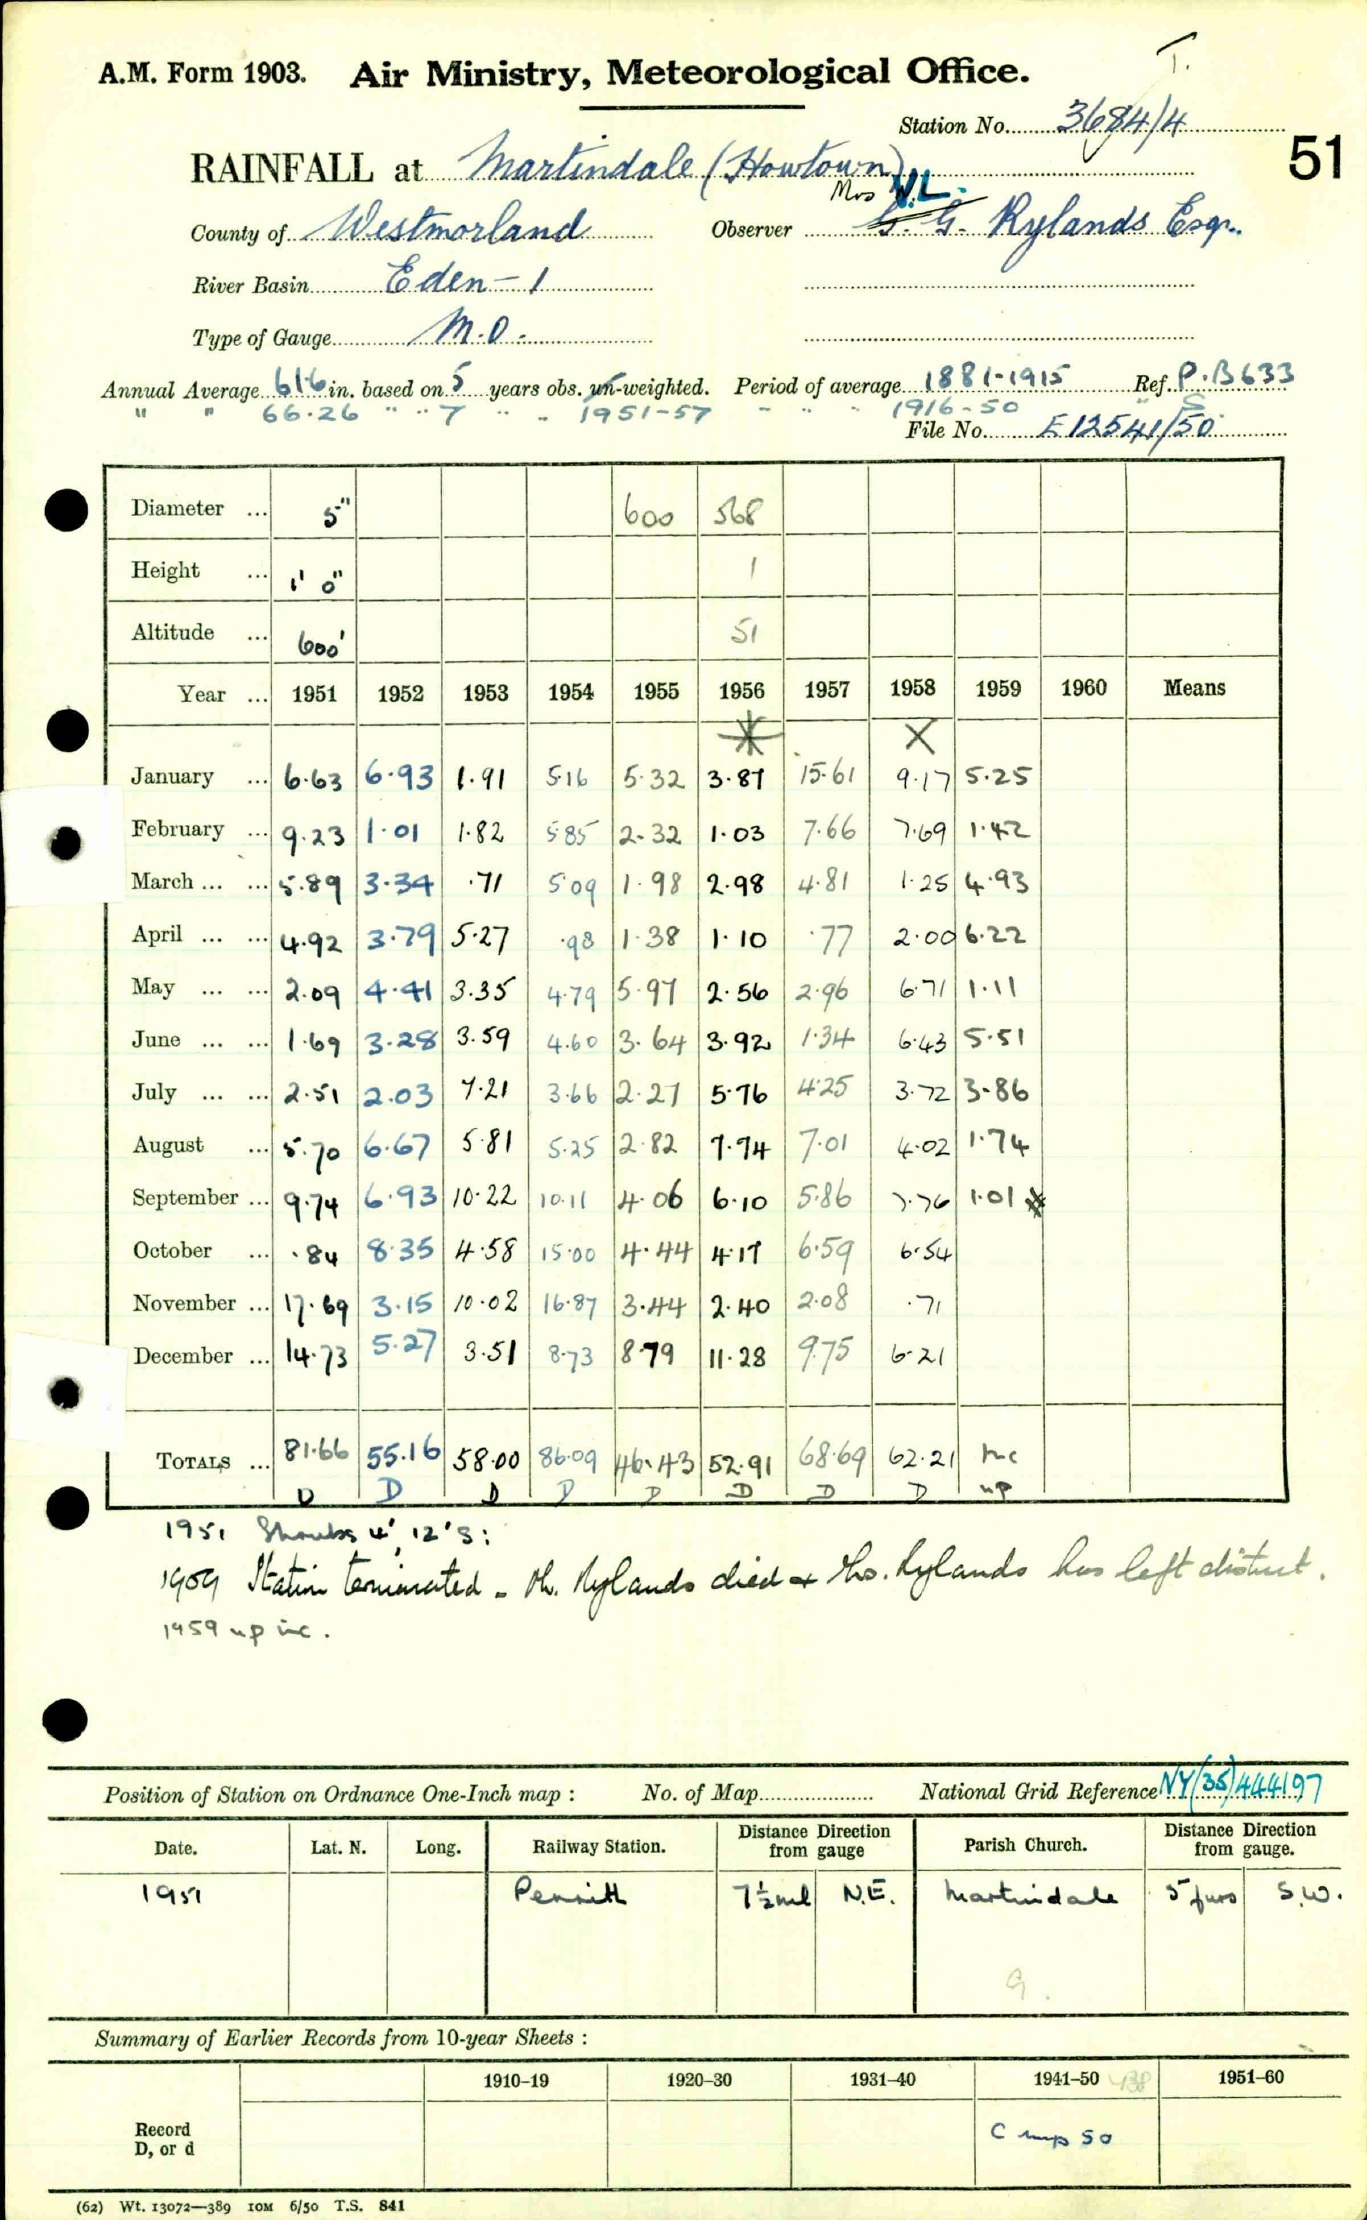 T.
A.M. Form 1903. Air Ministry, Meteorological Office.
Station No. 3684/4
51
RAINFALL at Martindale (Howtown)
Mrs W.L.
County of Westmorland Observer G. G. Rylands Esqr.
River Basin Eden-1
Type of Gauge M.O.
Annual Average 61.6 in. based on 5 years obs. un-weighted. Period of average 1881-1915 Ref. P.B633
" " 66.26 " " 7 " " 1951-57 " " " 1916-50 " S.
File No. E12541/50
Diameter ... 5" 600 568
Height ... 1' 0" 1
Altitude ... 600' 51
Year ... 1951 1952 1953 1954 1955 1956 1957 1958 1959 1960 Means
January ... 6.63 6.93 1.91 5.16 5.32 3.87 15.61 9.17 5.25
February ... 9.23 1.01 1.82 5.85 2.32 1.03 7.66 7.69 1.42
March ... ... 5.89 3.34 .71 5.09 1.98 2.98 4.81 1.25 4.93
April ... ... 4.92 3.79 5.27 .98 1.38 1.10 .77 2.00 6.22
May ... ... 2.09 4.41 3.35 4.79 5.97 2.56 2.96 6.71 1.11
June ... ... 1.69 3.28 3.59 4.60 3.64 3.92 1.34 6.43 5.51
July ... ... 2.51 2.03 7.21 3.66 2.27 5.76 4.25 3.72 3.86
August ... 5.70 6.67 5.81 5.25 2.82 7.74 7.01 4.02 1.74
September ... 9.74 6.93 10.22 10.11 4.06 6.10 5.86 7.76 1.01
October ... .84 8.35 4.58 15.00 4.44 4.17 6.59 6.54
November ... 17.69 3.15 10.02 16.87 3.44 2.40 2.08 .71
December ... 14.73 5.27 3.51 8.73 8.79 11.28 9.75 6.21
TOTALS ... 81.66 55.16 58.00 86.09 46.43 52.91 68.69 62.21 Inc
D D D D D D D D up
1951 Shrubs 4', 12' S;
1959 Station terminated - Mr. Rylands died & Mrs. Rylands has left district.
1959 up inc.
Position of Station on Ordnance One-Inch map : No. of Map National Grid Reference NY(35)444197
Date. Lat. N. Long. Railway Station. Distance Direction from gauge Parish Church. Distance Direction from gauge.
1951 Penrith 7½ml N.E. Martindale 5 furs S.W.
9.
Summary of Earlier Records from 10-year Sheets :
1910-19 1920-30 1931-40 1941-50 1951-60
Record
D, or d
C up 50
(62) Wt. 13072—389 10M 6/50 T.S. 841